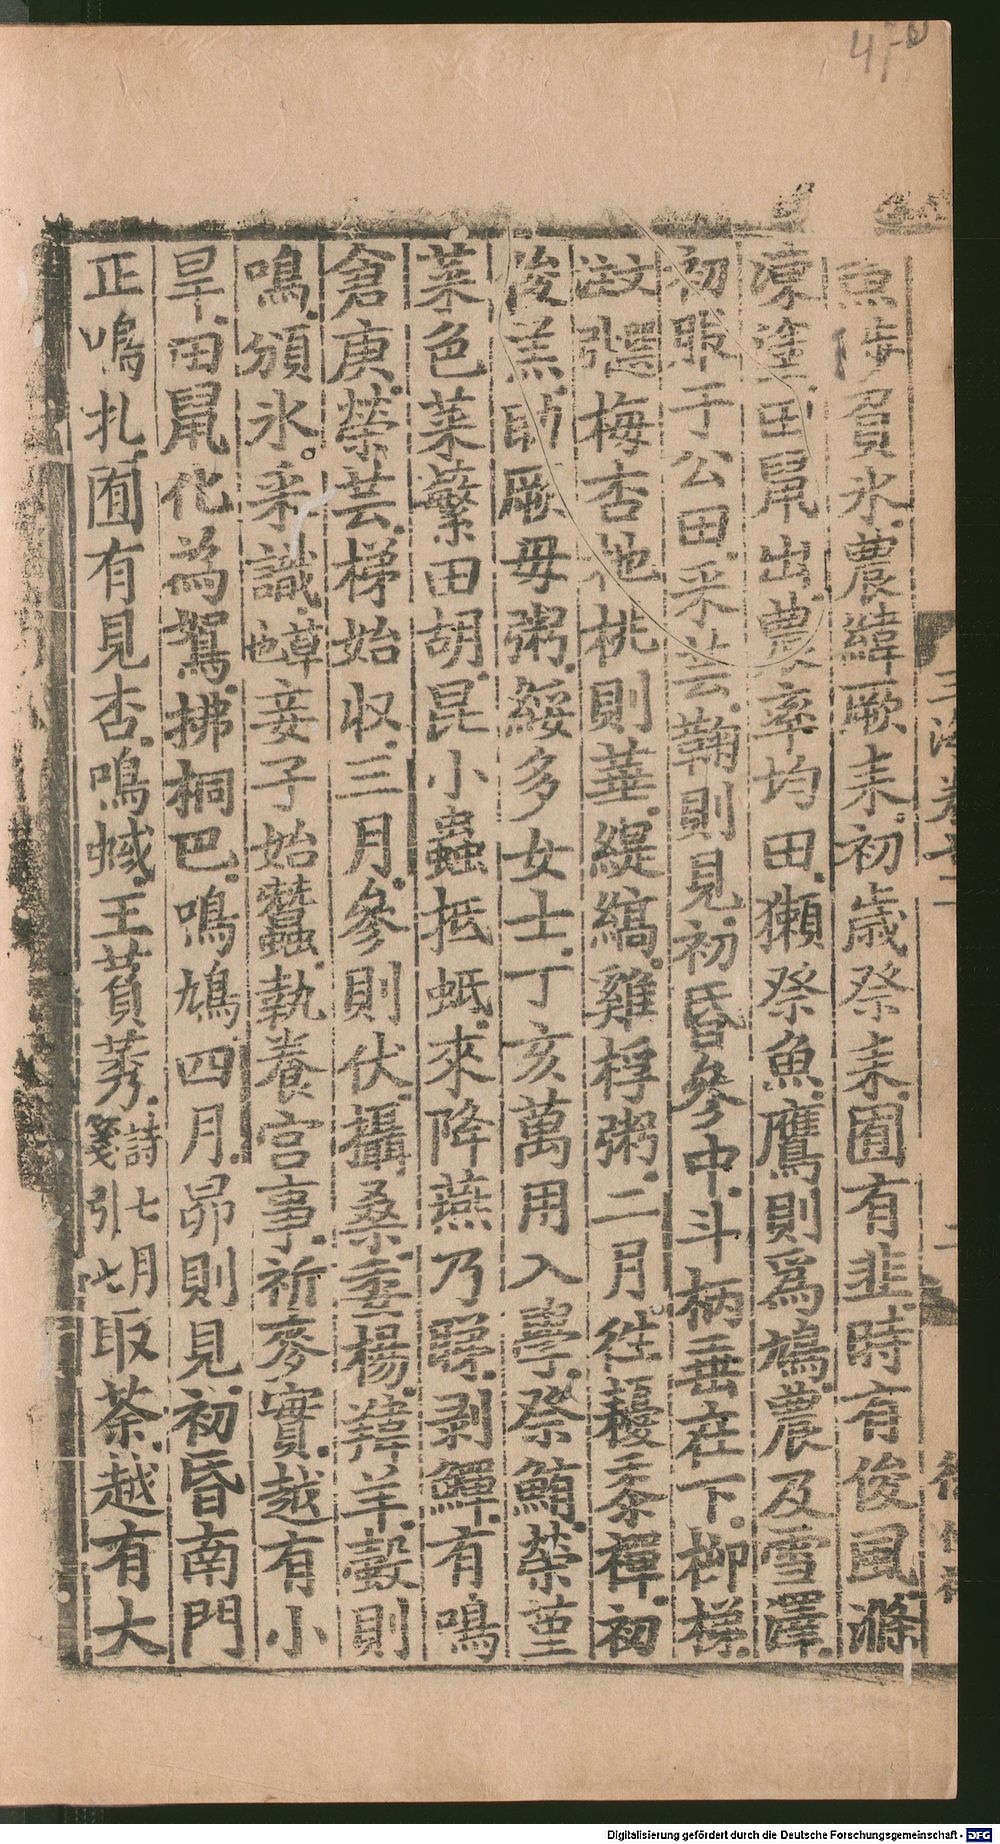 魚陟負氷農緯厥耒初歳祭耒囿有韭時有俊風滌
凍塗田鼠出農率均田獺祭魚鷹則爲鳩農及雪澤
初服于公田采芸鞠則見初昏參中斗柄垂在下柳稊
梅杏杝桃則華緹縞雞桴粥二月往耰黍襌初
俊羔助厥毋粥綏多女士丁亥萬用入學祭鮪榮菫
菜色菜蘩田胡昆小蟲抵蚳來降燕乃睇剥鱓有鳴
倉庚榮芸稊始収三月參則伏攝桑委楊羊轂則
鳴頒氷采識草也妾子始蠶執養宫事祈麥實越有小
旱田鼠化為鴽拂桐巴鳴鳩四月昴則見初昏南門
正鳴扎囿有見杏鳴蜮王萯莠詩七月箋引七月取荼越有大
470
Digitalisierung gefördert durch die Deutsche Forschungsgemeinschaft - DFG